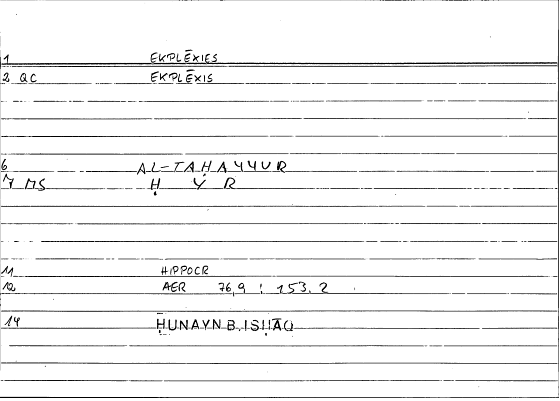 1 EKPLĒXIES
2 QC EKPLĒXIS
6 AL-TAḤAYYUR
7 MS Ḥ Y R
11 HIPPOCR
12 AER 76,9 : 153.2
14 ḤUNAYN B. ISḤĀQ